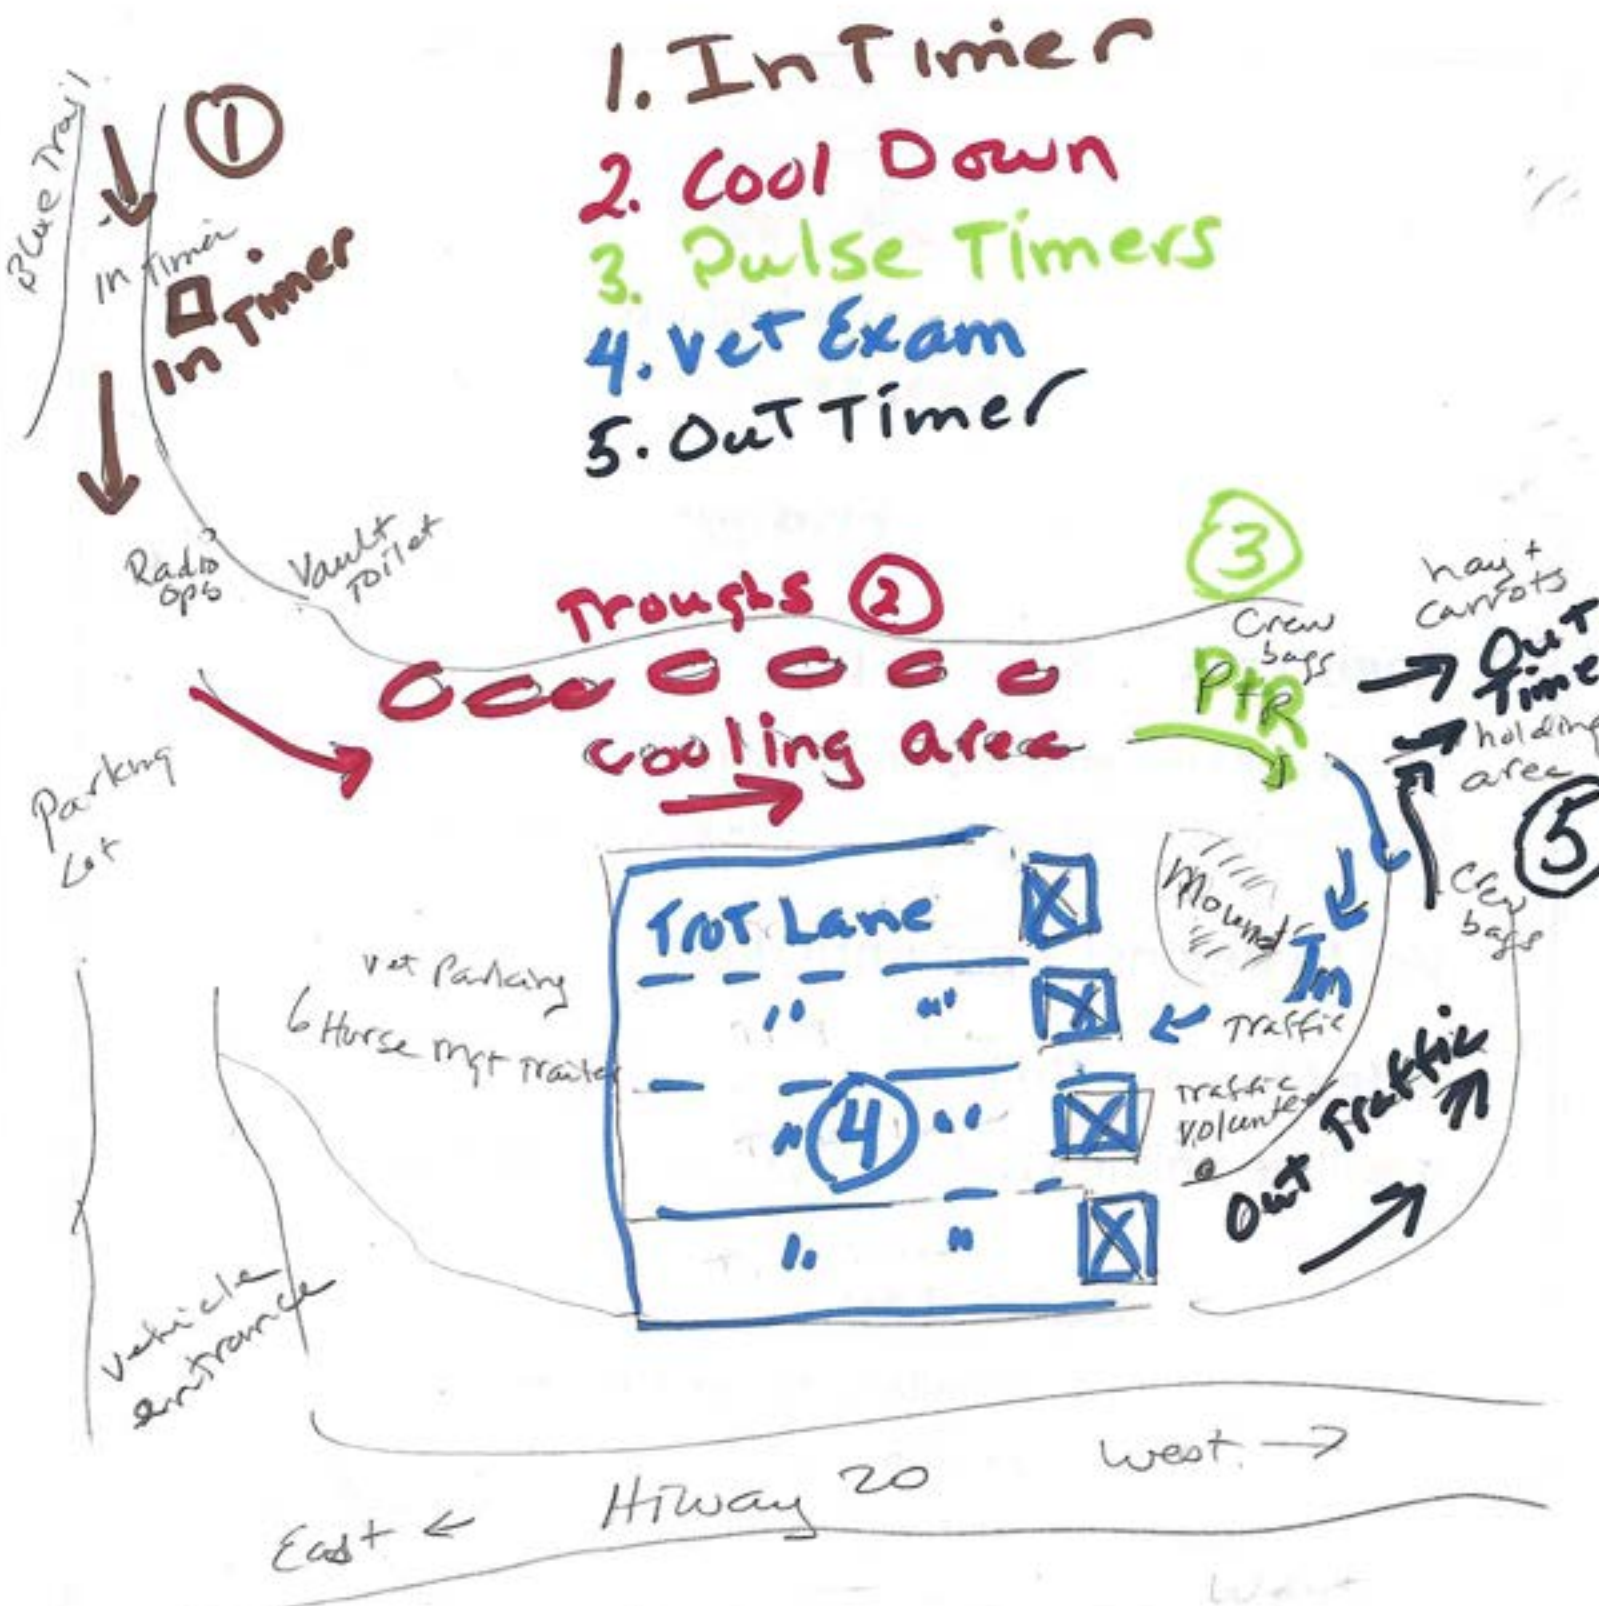 1. In Timer
2. Cool Down
3. Pulse Timers
4. Vet Exam
5. Out Timer
Blue Trail
1
In Timer
In Timer
Radio
ops
Vault
Toilet
Troughs 2
cooling area
3
Crew
bags
P+R
hay +
carrots
Out
Time
holding
area
5
Crew
bags
Parking
Lot
Trot Lane
" "
" 4 "
" "
Mound
In
Traffic
Traffic
Volunteer
Out Traffic
Vet Parking
Horse Mgt Trailer
Vehicle
entrance
West →
Hiway 20
East ←